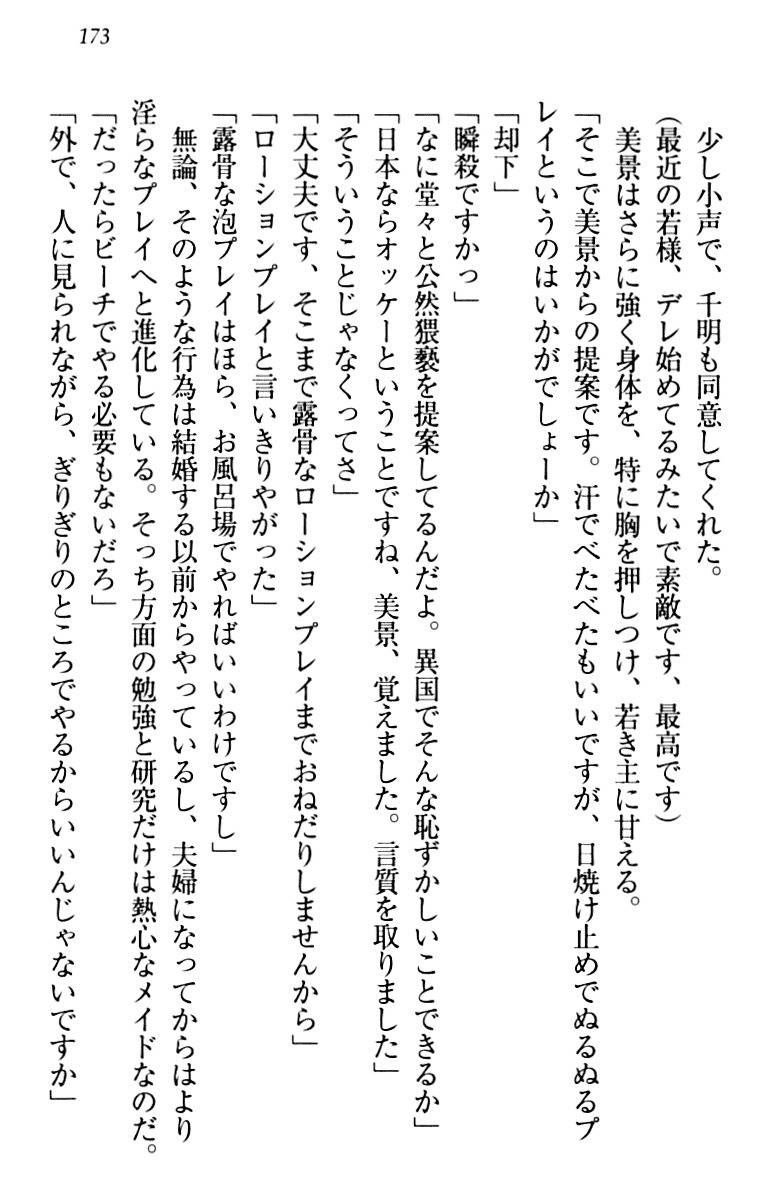 173
少し小声で、千明も同意してくれた。
(最近の若様、デレ始めてるみたいで素敵です、最高です)
美景はさらに強く身体を、特に胸を押しつけ、若き主に甘える。
「そこで美景からの提案です。汗でべたべたもいいですが、日焼け止めでぬるぬるプ
レイというのはいかがでしょーか」
「却下」
「瞬殺ですかっ」
「なに堂々と公然猥褻を提案してるんだよ。異国でそんな恥ずかしいことできるか」
「日本ならオッケーということですね、美景、覚えました。言質を取りました」
「そういうことじゃなくってさ」
「大丈夫です、そこまで露骨なローションプレイまでおねだりしませんから」
「ローションプレイと言いきりやがった」
「露骨な泡プレイはほら、お風呂場でやればいいわけですし」
無論、そのような行為は結婚する以前からやっているし、夫婦になってからはより
淫らなプレイへと進化している。そっち方面の勉強と研究だけは熱心なメイドなのだ。
「だったらビーチでやる必要もないだろ」
「外で、人に見られながら、ぎりぎりのところでやるからいいんじゃないですか」